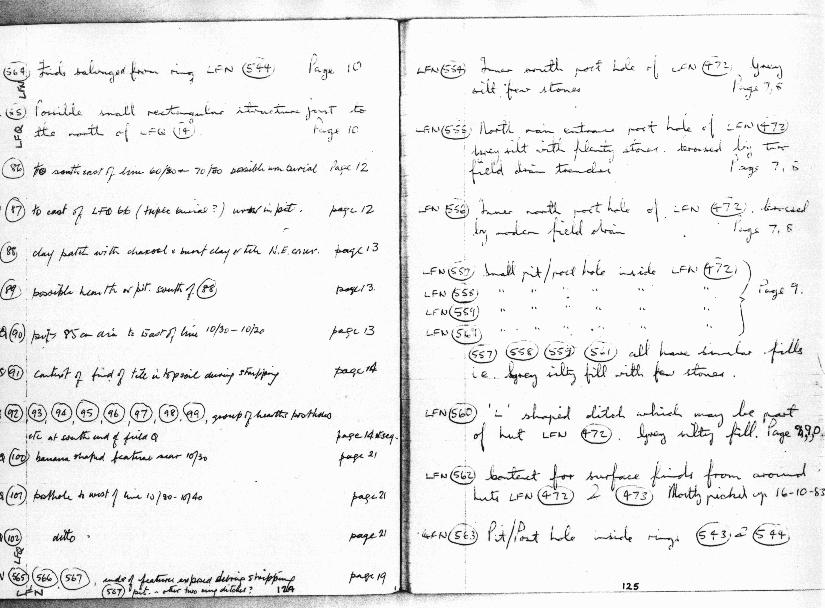 564 Finds salvaged from ring LFN 544 Page 10
LFN
85 Possible small rectangular structure just to
LFQ the north of LFQ 14. Page 10
86 to south east of line 60/80 - 70/80 possible urn burial Page 12
87 to east of LFQ 66 (tripec burial?) urn in pit. page 12
88 clay patch with charcoal + burnt clay + tile N.E. corner. page 13
89 possible hearth or pit. south of 88 page 13.
90 pit 85 cm dia to East of line 10/30-10/20 page 13
91 context of find of tile in topsoil during stripping page 14
92, 93, 94, 95, 96, 97, 98, 99, group of hearths postholes
etc at south end of field Q page 14 et seq.
100 banana shaped feature near 10/30 page 21
101 posthole to west of line 10/30-10/40 page 21
102 ditto page 21
LFQ
565 566 567, ends of features exposed during stripping page 19
LFN 567 pit. - other two may ditches? 124
LFN 554 Inner south post hole of LFN 472. Grey
silt few stones Page 7, 8
LFN 555 North main entrance post hole of LFN 472
Grey silt with plenty stones. crossed by two
field drain trenches Page 7, 8
LFN 556 Inner north post hole of LFN 472. crossed
by modern field drain Page 7, 8
LFN 557 Small pit/post hole inside LFN 472
LFN 558 " " " " " Page 9.
LFN 559 " " " " "
LFN 561 " " " " "
557 558 559 561 all have similar fills
i.e. Grey silty fill with few stones.
LFN 560 'L' shaped ditch which may be part
of hut LFN 472. Grey silty fill. Page 8,9,10.
LFN 562 Context for surface finds from around
huts LFN 472 & 473 Mostly picked up 16-10-83
LFN 563 Pit/Post hole inside rings 543 & 544
125